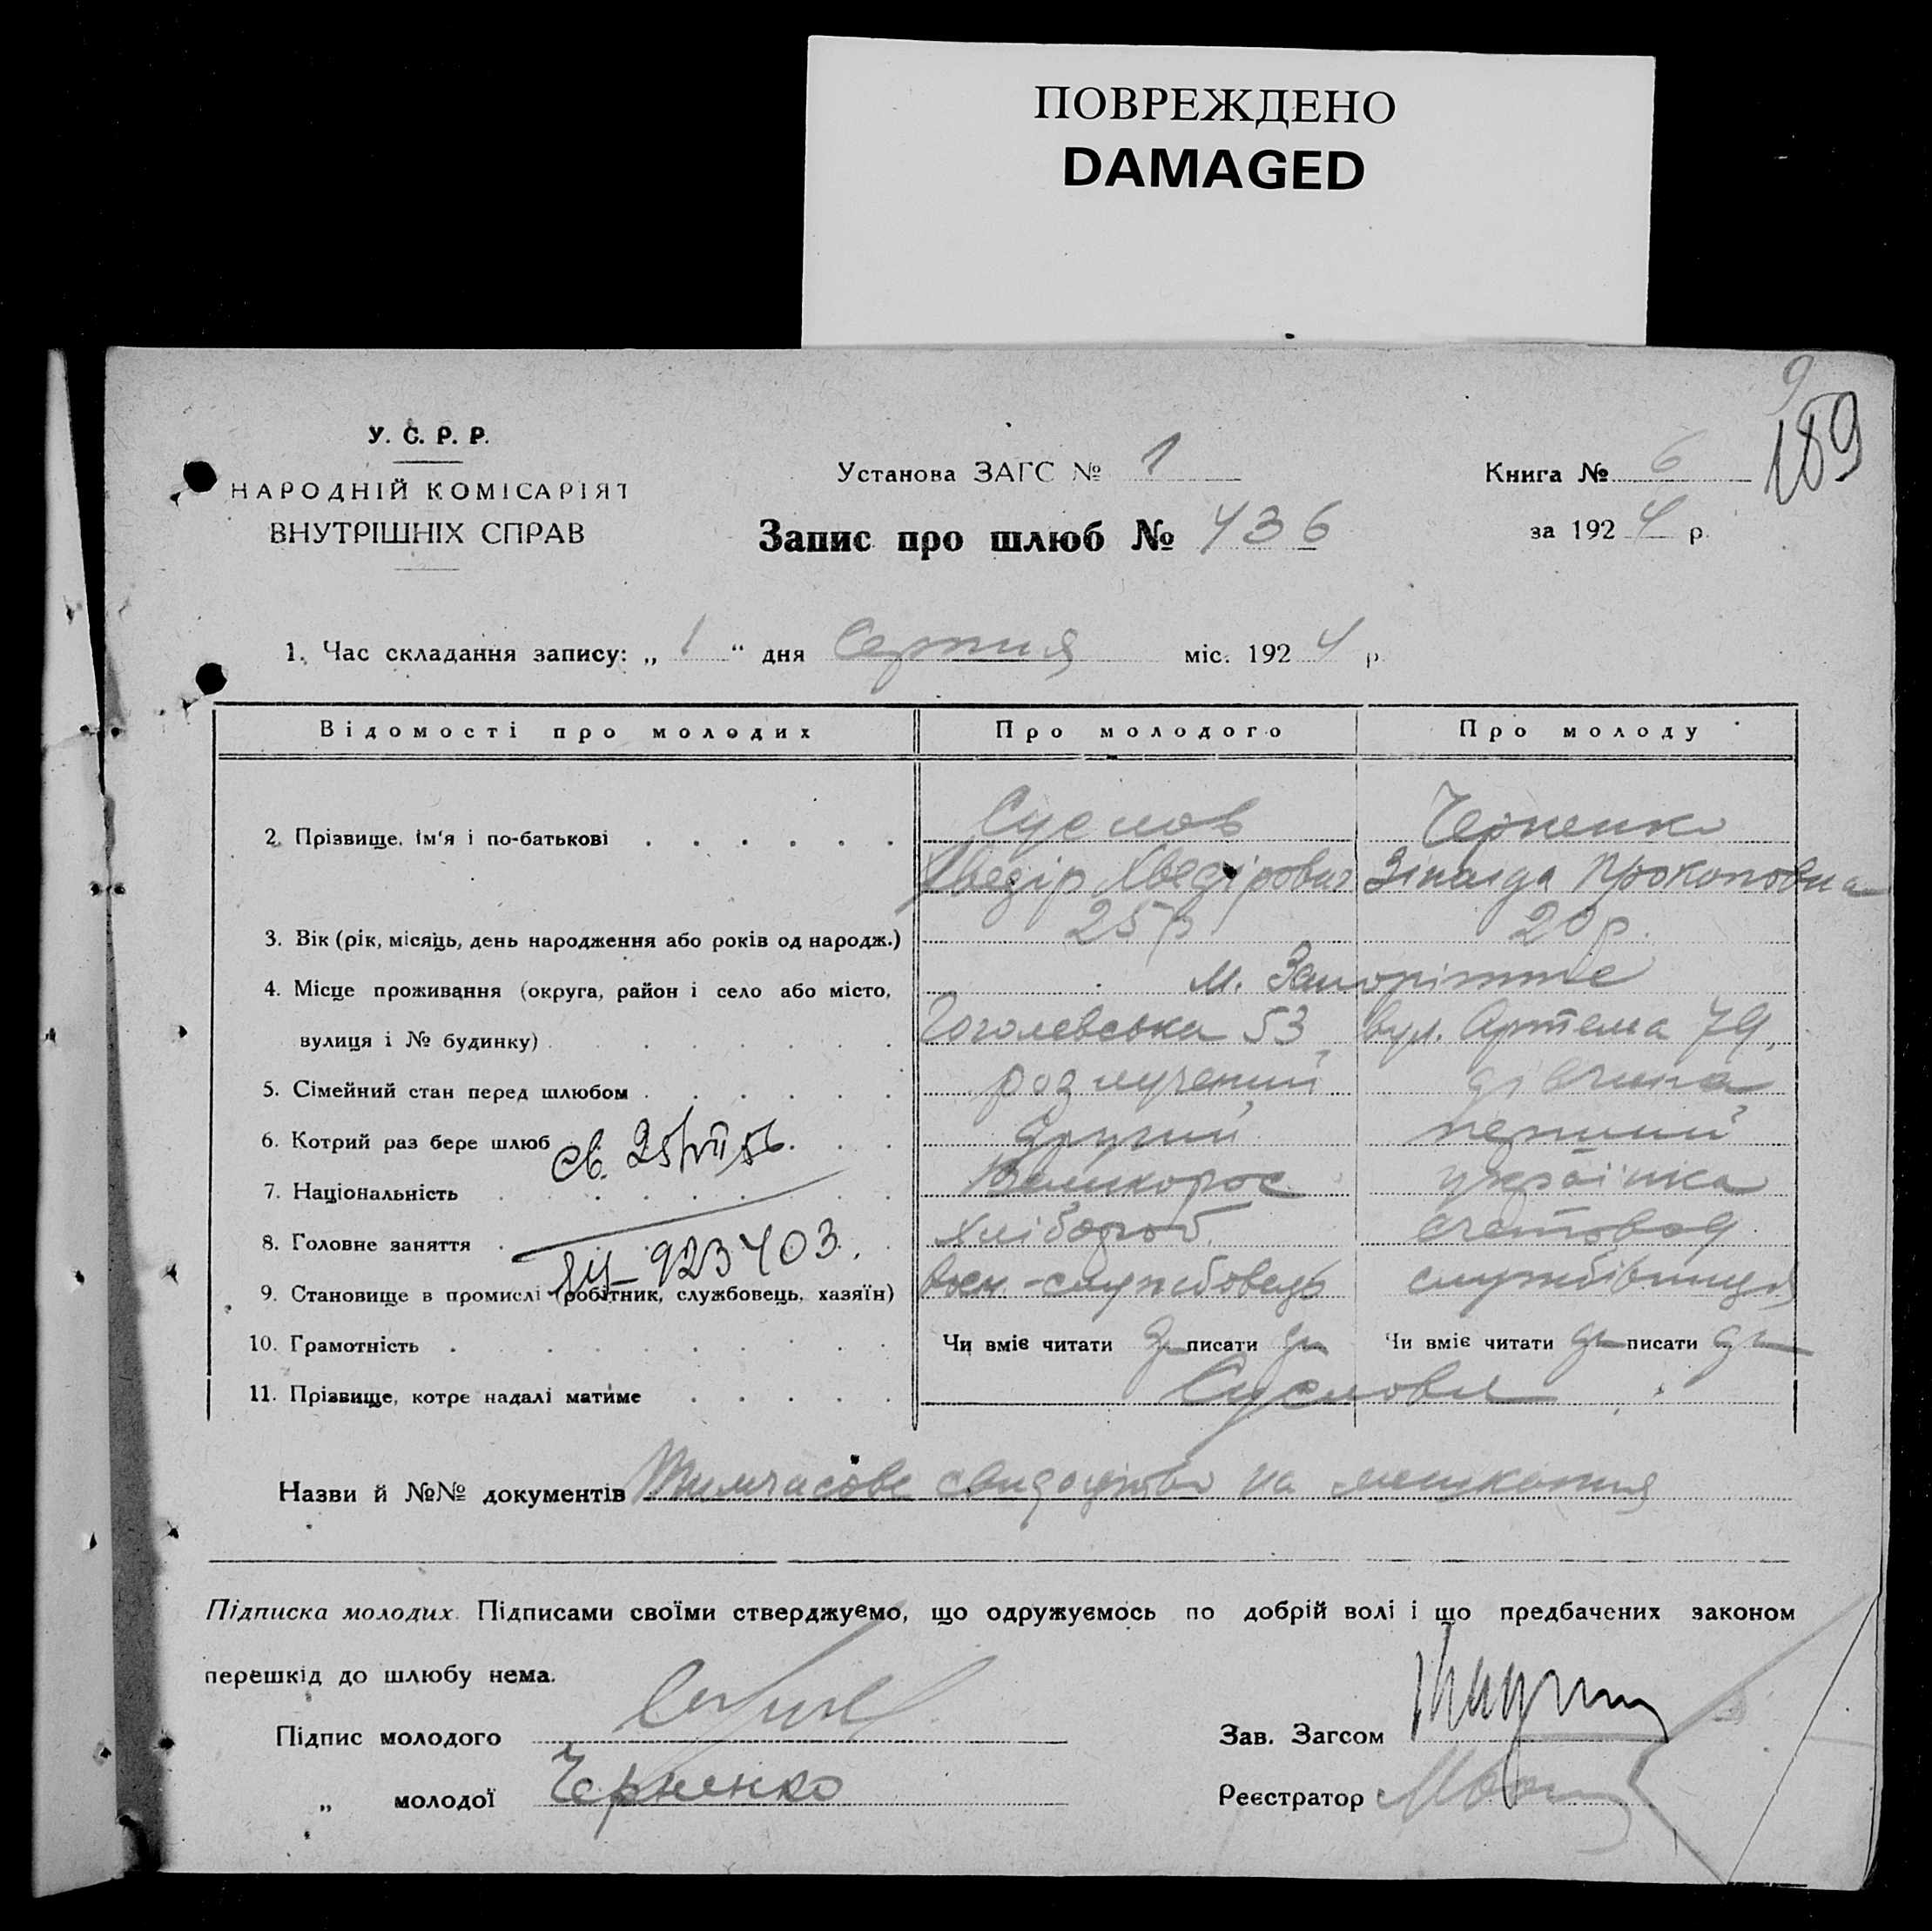 ПОВРЕЖДЕНО
DAMAGED
9
189
У. С. Р. Р.
НАРОДНІЙ КОМІСАРІЯТ
ВНУТРІШНІХ СПРАВ
Установа ЗАГС № 1
Книга № 6
Запис про шлюб № 436
за 1924 р.
1. Час складання запису: „ 1 “ дня Серпня міс. 1924 р.
Відомості про молодих Про молодого Про молоду
2. Прізвище, ім'я і по-батькові Суслов Черненко
Хведір Хведірович Зінаїда Прокоповна
3. Вік (рік, місяць, день народження або років од народж.) 25 р 20 р.
4. Місце проживання (округа, район і село або місто, м. Запоріжже
вулиця і № будинку) Гоголевська 53 вул. Артема 79,
5. Сімейний стан перед шлюбом розлучений дівчина
6. Котрий раз бере шлюб другий перший
св. 25/VII 56.
7. Національність Великорос українка
8. Головне заняття хлібороб счетовод
923403.
9. Становище в промислі (робітник, службовець, хазяїн) Воен.-службовець службівниця
10. Грамотність Чи вміє читати да писати да Чи вміє читати да писати да
11. Прізвище, котре надалі матиме Суслови
Назви й №№ документів Тимчасове свидоцтво на мешкання
Підписка молодих. Підписами своїми стверджуємо, що одружуємось по добрій волі і що предбачених законом
перешкід до шлюбу нема.
Підпис молодого
Зав. Загсом
„ молодої Черненко
Реєстратор